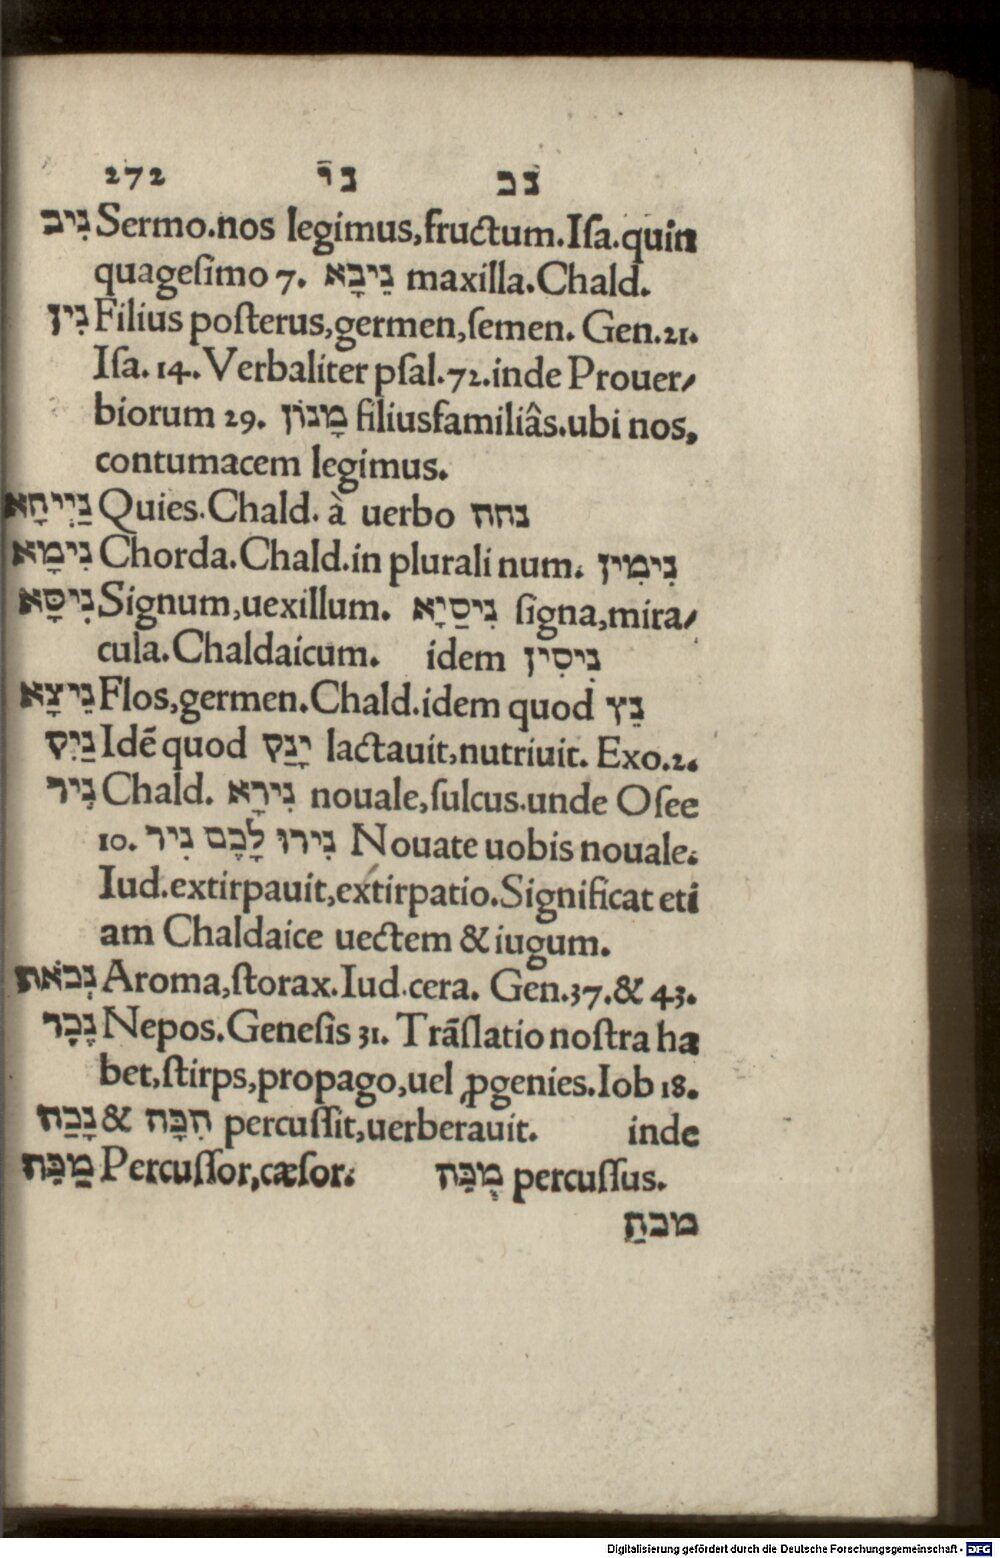 272 ני נכ
נִיב Sermo.nos legimus,fructum.Iſa.quin
quageſimo 7. נִיבָא maxilla.Chald.
נִין Filius poſterus,germen,ſemen. Gen.21.
Iſa. 14. Verbaliter pſal.72.inde Prouer/
biorum 29. מָנוֹן filiusfamiliâs.ubi nos,
contumacem legimus.
נַיְיחָא Quies.Chald. à uerbo נחח
נִימָא Chorda.Chald.in plurali num. נִימִין
נִיסָּא Signum,uexillum. נִיסַיָא ſigna,mira/
cula.Chaldaicum. idem נִיסִין
נֵיצָא Flos,germen.Chald.idem quod נֵץ
נַיִק Idē quod יָנַק lactauit,nutriuit. Exo.2.
נִיר Chald. נִירָא nouale,ſulcus.unde Oſee
10. נִירוּ לָכֶם נִיר Nouate uobis nouale.
Iud.extirpauit,extirpatio.Significat eti
am Chaldaice uectem & iugum.
נְכֹאת Aroma,ſtorax.Iud.cera. Gen.37.& 43.
נֶכֶד Nepos.Geneſis 31. Trāſlatio noſtra ha
bet,ſtirps,propago,uel ꝓgenies.Iob 18.
נָכַה & הִכָּה percuſſit,uerberauit. inde
מַכֵּה Percuſſor,cæſor. מֻכֵּה percuſſus.
מכהַ